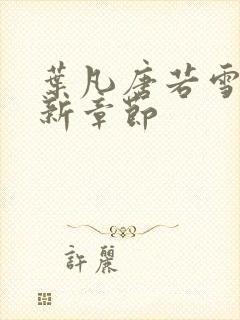 葉凡唐若雪
新章節
許麗